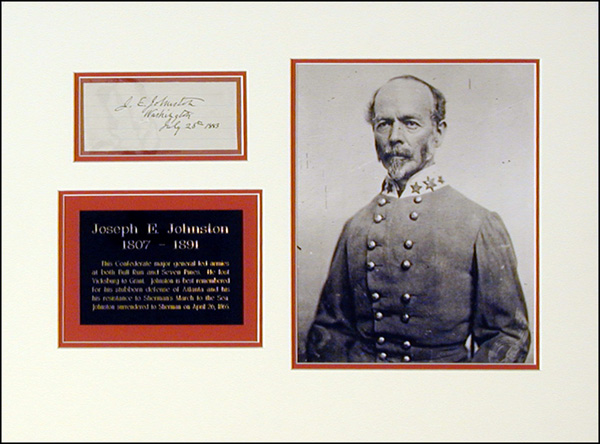 J. E. Johnston
Washington
July 28th 1883
Joseph E. Johnston
1807 - 1891
This Confederate major general led armies
at both Bull Run and Seven Pines. He lost
Vicksburg to Grant. Johnston is best remembered
for his stubborn defense of Atlanta and his
his resistance to Sherman's March to the Sea.
Johnston surrendered to Sherman on April 26, 1865